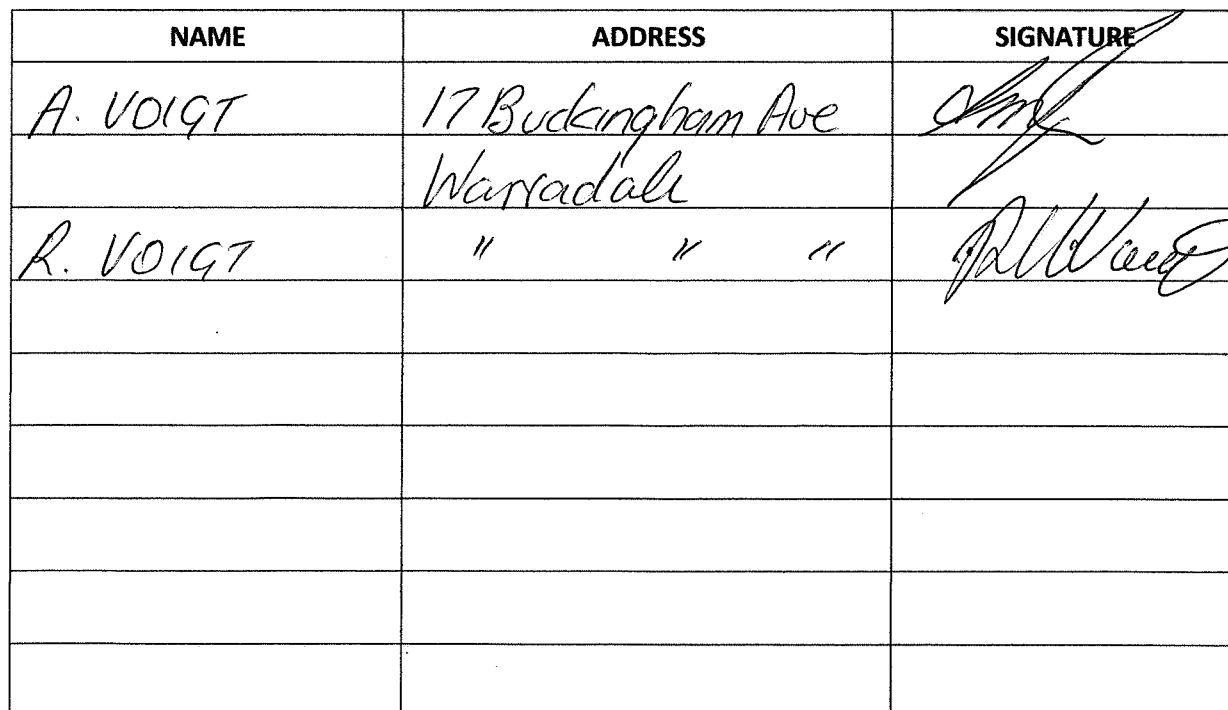 NAME ADDRESS SIGNATURE
A. VOIGT 17 Buckingham Ave
Warradale
R. VOIGT " " "